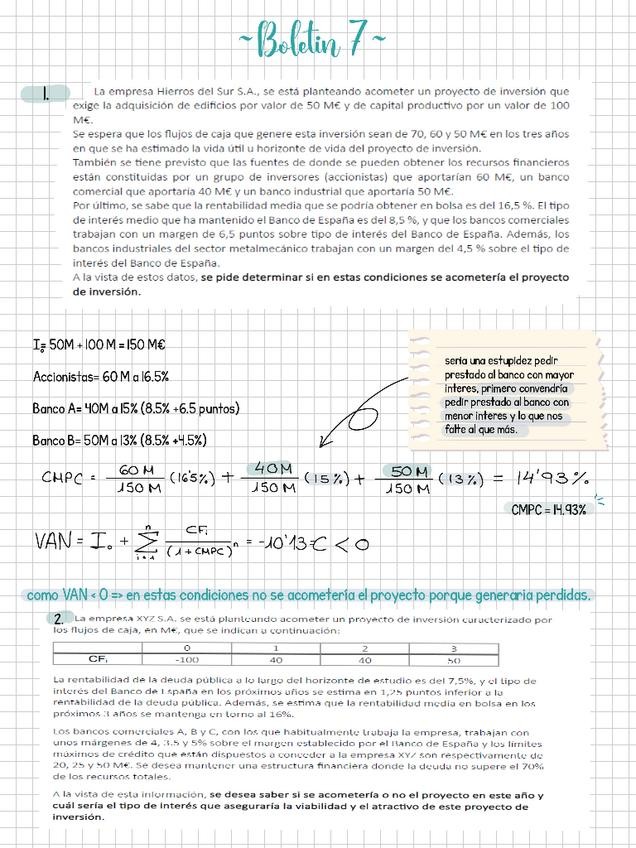 ~Boletin 7~
1. La empresa Hierros del Sur S.A., se está planteando acometer un proyecto de inversión que
exige la adquisición de edificios por valor de 50 M€ y de capital productivo por un valor de 100
M€.
Se espera que los flujos de caja que genere esta inversión sean de 70, 60 y 50 M€ en los tres años
en que se ha estimado la vida útil u horizonte de vida del proyecto de inversión.
También se tiene previsto que las fuentes de donde se pueden obtener los recursos financieros
están constituidas por un grupo de inversores (accionistas) que aportarían 60 M€, un banco
comercial que aportaría 40 M€ y un banco industrial que aportaría 50 M€.
Por último, se sabe que la rentabilidad media que se podría obtener en bolsa es del 16,5 %. El tipo
de interés medio que ha mantenido el Banco de España es del 8,5 %, y que los bancos comerciales
trabajan con un margen de 6,5 puntos sobre tipo de interés del Banco de España. Además, los
bancos industriales del sector metalmecánico trabajan con un margen del 4,5 % sobre el tipo de
interés del Banco de España.
A la vista de estos datos, se pide determinar si en estas condiciones se acometería el proyecto
de inversión.
I₀= 50M + 100 M = 150 M€
Accionistas= 60 M a 16.5%
Banco A= 40M a 15% (8.5% +6.5 puntos)
Banco B= 50M a 13% (8.5% +4.5%)
seria una estupidez pedir
prestado al banco con mayor
interes, primero convendría
pedir prestado al banco con
menor interes y lo que nos
falte al que más.
CMPC = 60 M / 150 M (16'5%) + 40 M / 150 M (15%) + 50 M / 150 M (13%) = 14'93%
CMPC = 14.93%
VAN = I₀ + Σ n i=1 CFi / (1 + CMPC)ⁿ = -10'13€ < 0
como VAN < 0 => en estas condiciones no se acometería el proyecto porque generaria perdidas.
2. La empresa XYZ S.A. se está planteando acometer un proyecto de inversión caracterizado por
los flujos de caja, en M€, que se indican a continuación:
0 1 2 3
CFᵢ -100 40 40 50
La rentabilidad de la deuda pública a lo largo del horizonte de estudio es del 7,5%, y el tipo de
interés del Banco de España en los próximos años se estima en 1,25 puntos inferior a la
rentabilidad de la deuda pública. Además, se estima que la rentabilidad media en bolsa en los
próximos 3 años se mantenga en torno al 16%.
Los bancos comerciales A, B y C, con los que habitualmente trabaja la empresa, trabajan con
unos márgenes de 4, 3,5 y 5% sobre el margen establecido por el Banco de España y los límites
máximos de crédito que están dispuestos a conceder a la empresa XYZ son respectivamente de
20, 25 y 50 M€. Se desea mantener una estructura financiera donde la deuda no supere el 70%
de los recursos totales.
A la vista de esta información, se desea saber si se acometería o no el proyecto en este año y
cuál sería el tipo de interés que aseguraría la viabilidad y el atractivo de este proyecto de
inversión.